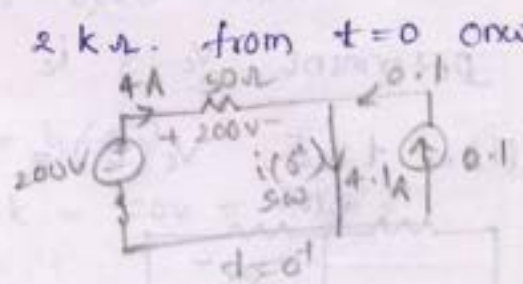 2 kΩ. from t=0 onw
4A 50Ω 0.1
+ 200V -
200V i(0⁺) 4.1A 0.1
SW
t=0⁺